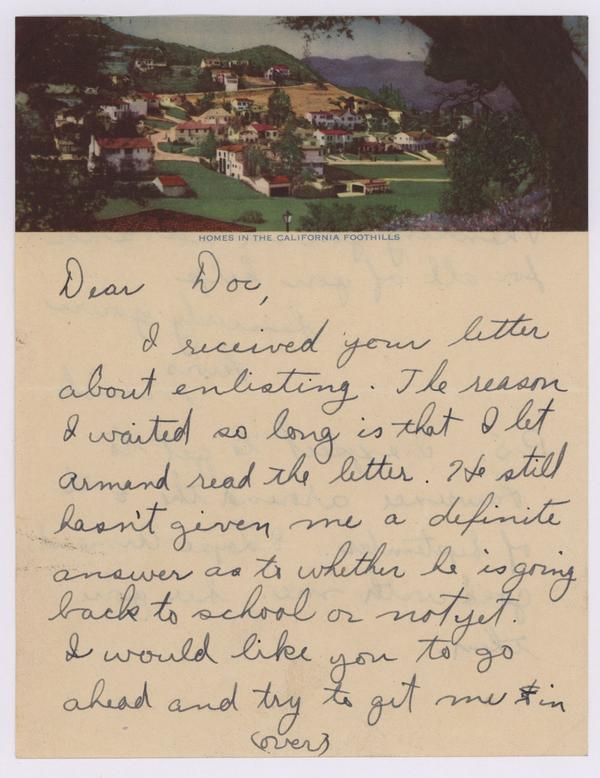 HOMES IN THE CALIFORNIA FOOTHILLS
Dear Doc,
I received your letter
about enlisting. The reason
I waited so long is that I let
Armand read the letter. He still
hasn't given me a definite
answer as to whether he is going
back to school or not yet.
I would like you to go
ahead and try to get me in
(over)